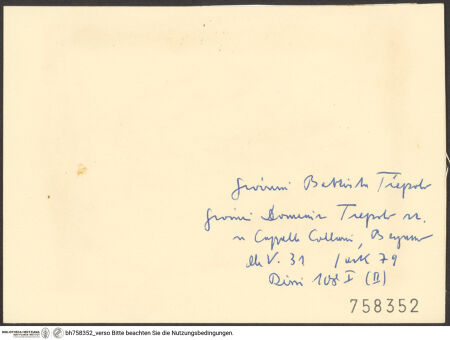 Giovanni Battista Tiepolo
Giovanni Domenico Tiepolo
Cappella Colleoni, Bergamo
V. 31 79
108 I (B)
758352
BIBLIOTHECA HERTZIANA
bh758352_verso Bitte beachten Sie die Nutzungsbedingungen.